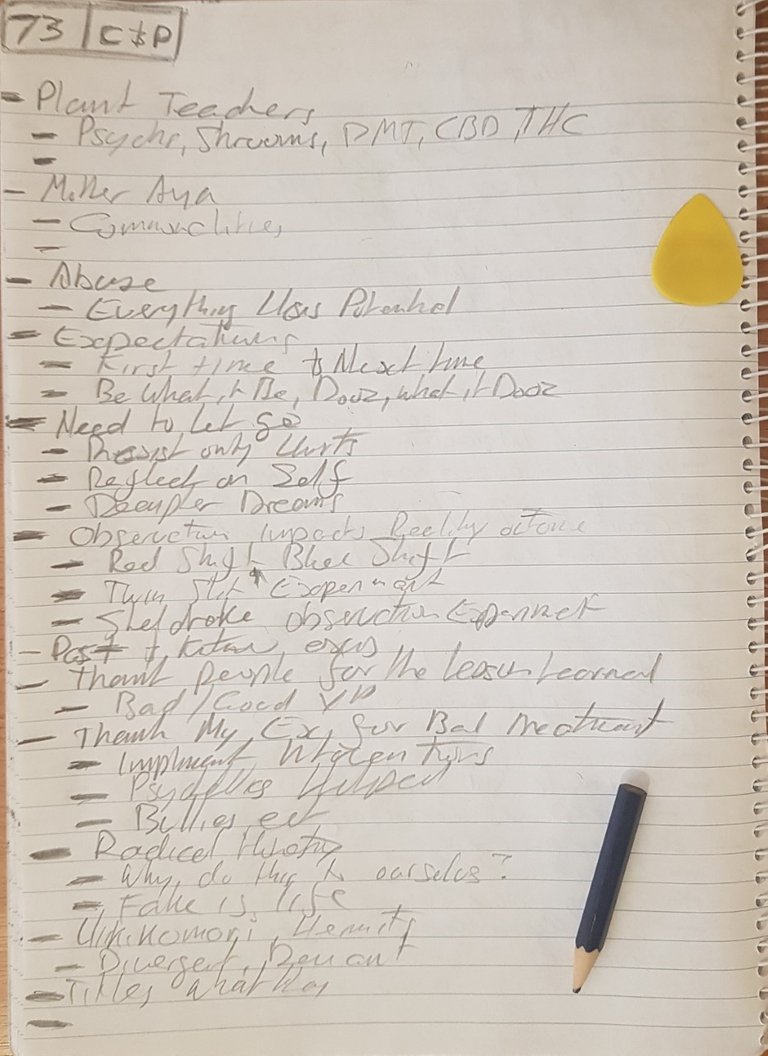 73 | C&P
- Plant Teachers
- Psychs, Shrooms, DMT, CBD, THC
-
- Mother Aya
- Communalities
-
- Abuse
- Everything Has Potential
- Expectations
- First time & Next time
- Be What it Be, Dooz, what it Dooz
- Need to Let go
- Resist only Hurts
- Reflect on Self
- Deeper Dreams
- Observation impacts Reality
- Red Shift Blue Shift
- Twin Slit Experiment
- Sheldrake observation Experiment
- Past &
- Thank People for the Lesson Learned
- Bad/Good
- Thank My Ex, for Bad Treatment
- Implment
- Helped
- Bullies ect
- Radical
- Why, do this to ourselves?
- Fake is life
- Hikikomori, Hermits
- Divergent, Deviant
- Titles, what
-